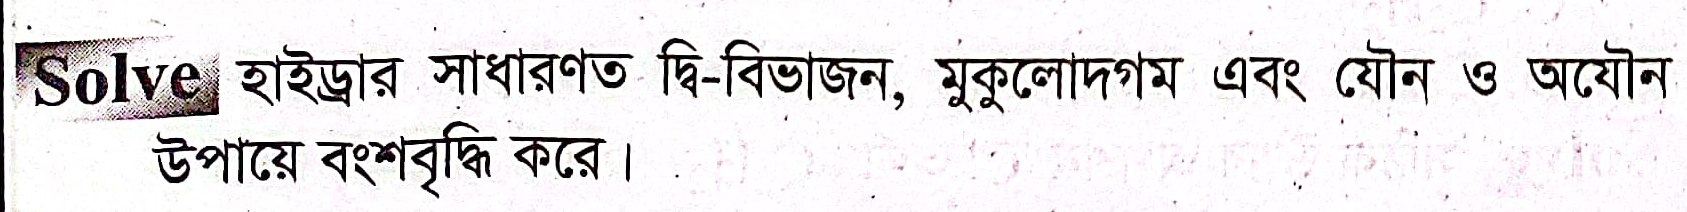 Solve হাইড্রার সাধারণত দ্বি-বিভাজন, মুকুলোদগম এবং যৌন ও অযৌন
উপায়ে বংশবৃদ্ধি করে।